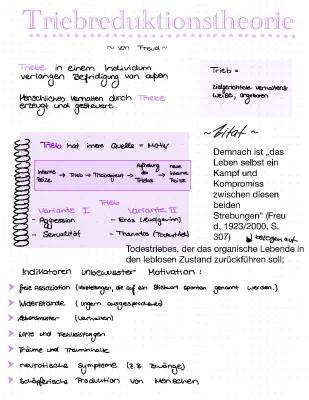 Triebreduktionstheorie
~ von Freud ~
Triebe in einem Individium
verlangen Befridigung von außen
Menschliches Verhalten durch Triebe
erzeugt und gesteuert.
Trieb =
zielgerichtete Verhaltens-
weise, angeboren
Trieb hat innere Quelle = Motiv
Interne Reize → Trieb → Triebobjekt → Aufhebung des Triebes → neue interne Reize
Trieb
Variante I
- Aggression
- Sexualität
Variante II
- Eros
- Thanatos (Todestrieb)
~ Zitat ~
Demnach ist „das
Leben selbst ein
Kampf und
Kompromiss
zwischen diesen
beiden
Strebungen“ (Freu
d, 1923/2000, S.
307)
bezogen auf
Todestriebes, der das organische Lebende in
den leblosen Zustand zurückführen soll;
Indikatoren unbewusster Motivation:
freie Assoziation (Vorstellungen, die auf ein Stichwort spontan genannt werden.)
Widerstände (ungern ausgesprochenes)
Lebensmuster (Verhalten)
Witze und Fehlleistungen
Träume und Trauminhalte
neurotische Symptome (z.B. Zwänge)
Schöpferische Produktion von Menschen